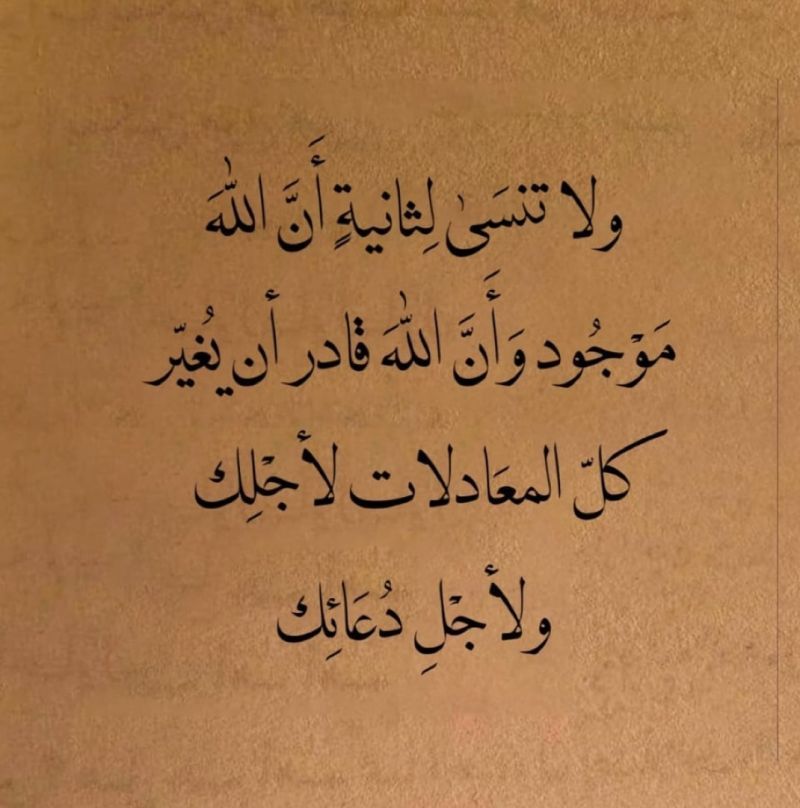 ولا تنسَىٰ لِثانيةٍ أَنَّ اللّٰهَ
مَوْجُود وَأَنَّ اللّٰهَ قادر أن يُغيّر
كلّ المعَادلات لأجْلِك
ولأجْلِ دُعَائِك